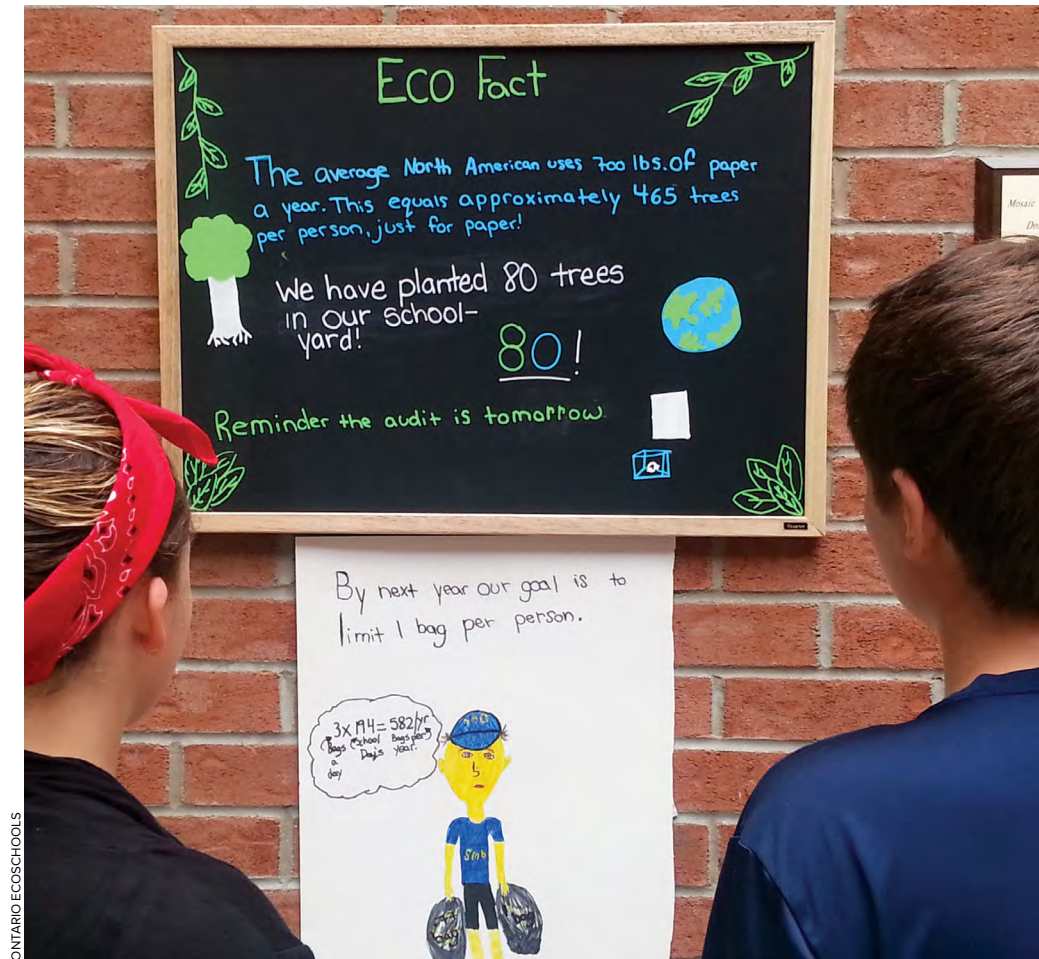 Eco Fact
The average North American uses 700 lbs. of paper
a year. This equals approximately 465 trees
per person, just for paper!
We have planted 80 trees
in our school-
yard!
80!
Reminder the audit is tomorrow
a
Quartet
Mosaic
By next year our goal is to
limit 1 bag per person.
3x194=582/yr
Bags School Bags per
a Days year.
day
Smb
bag
ONTARIO ECOSCHOOLS